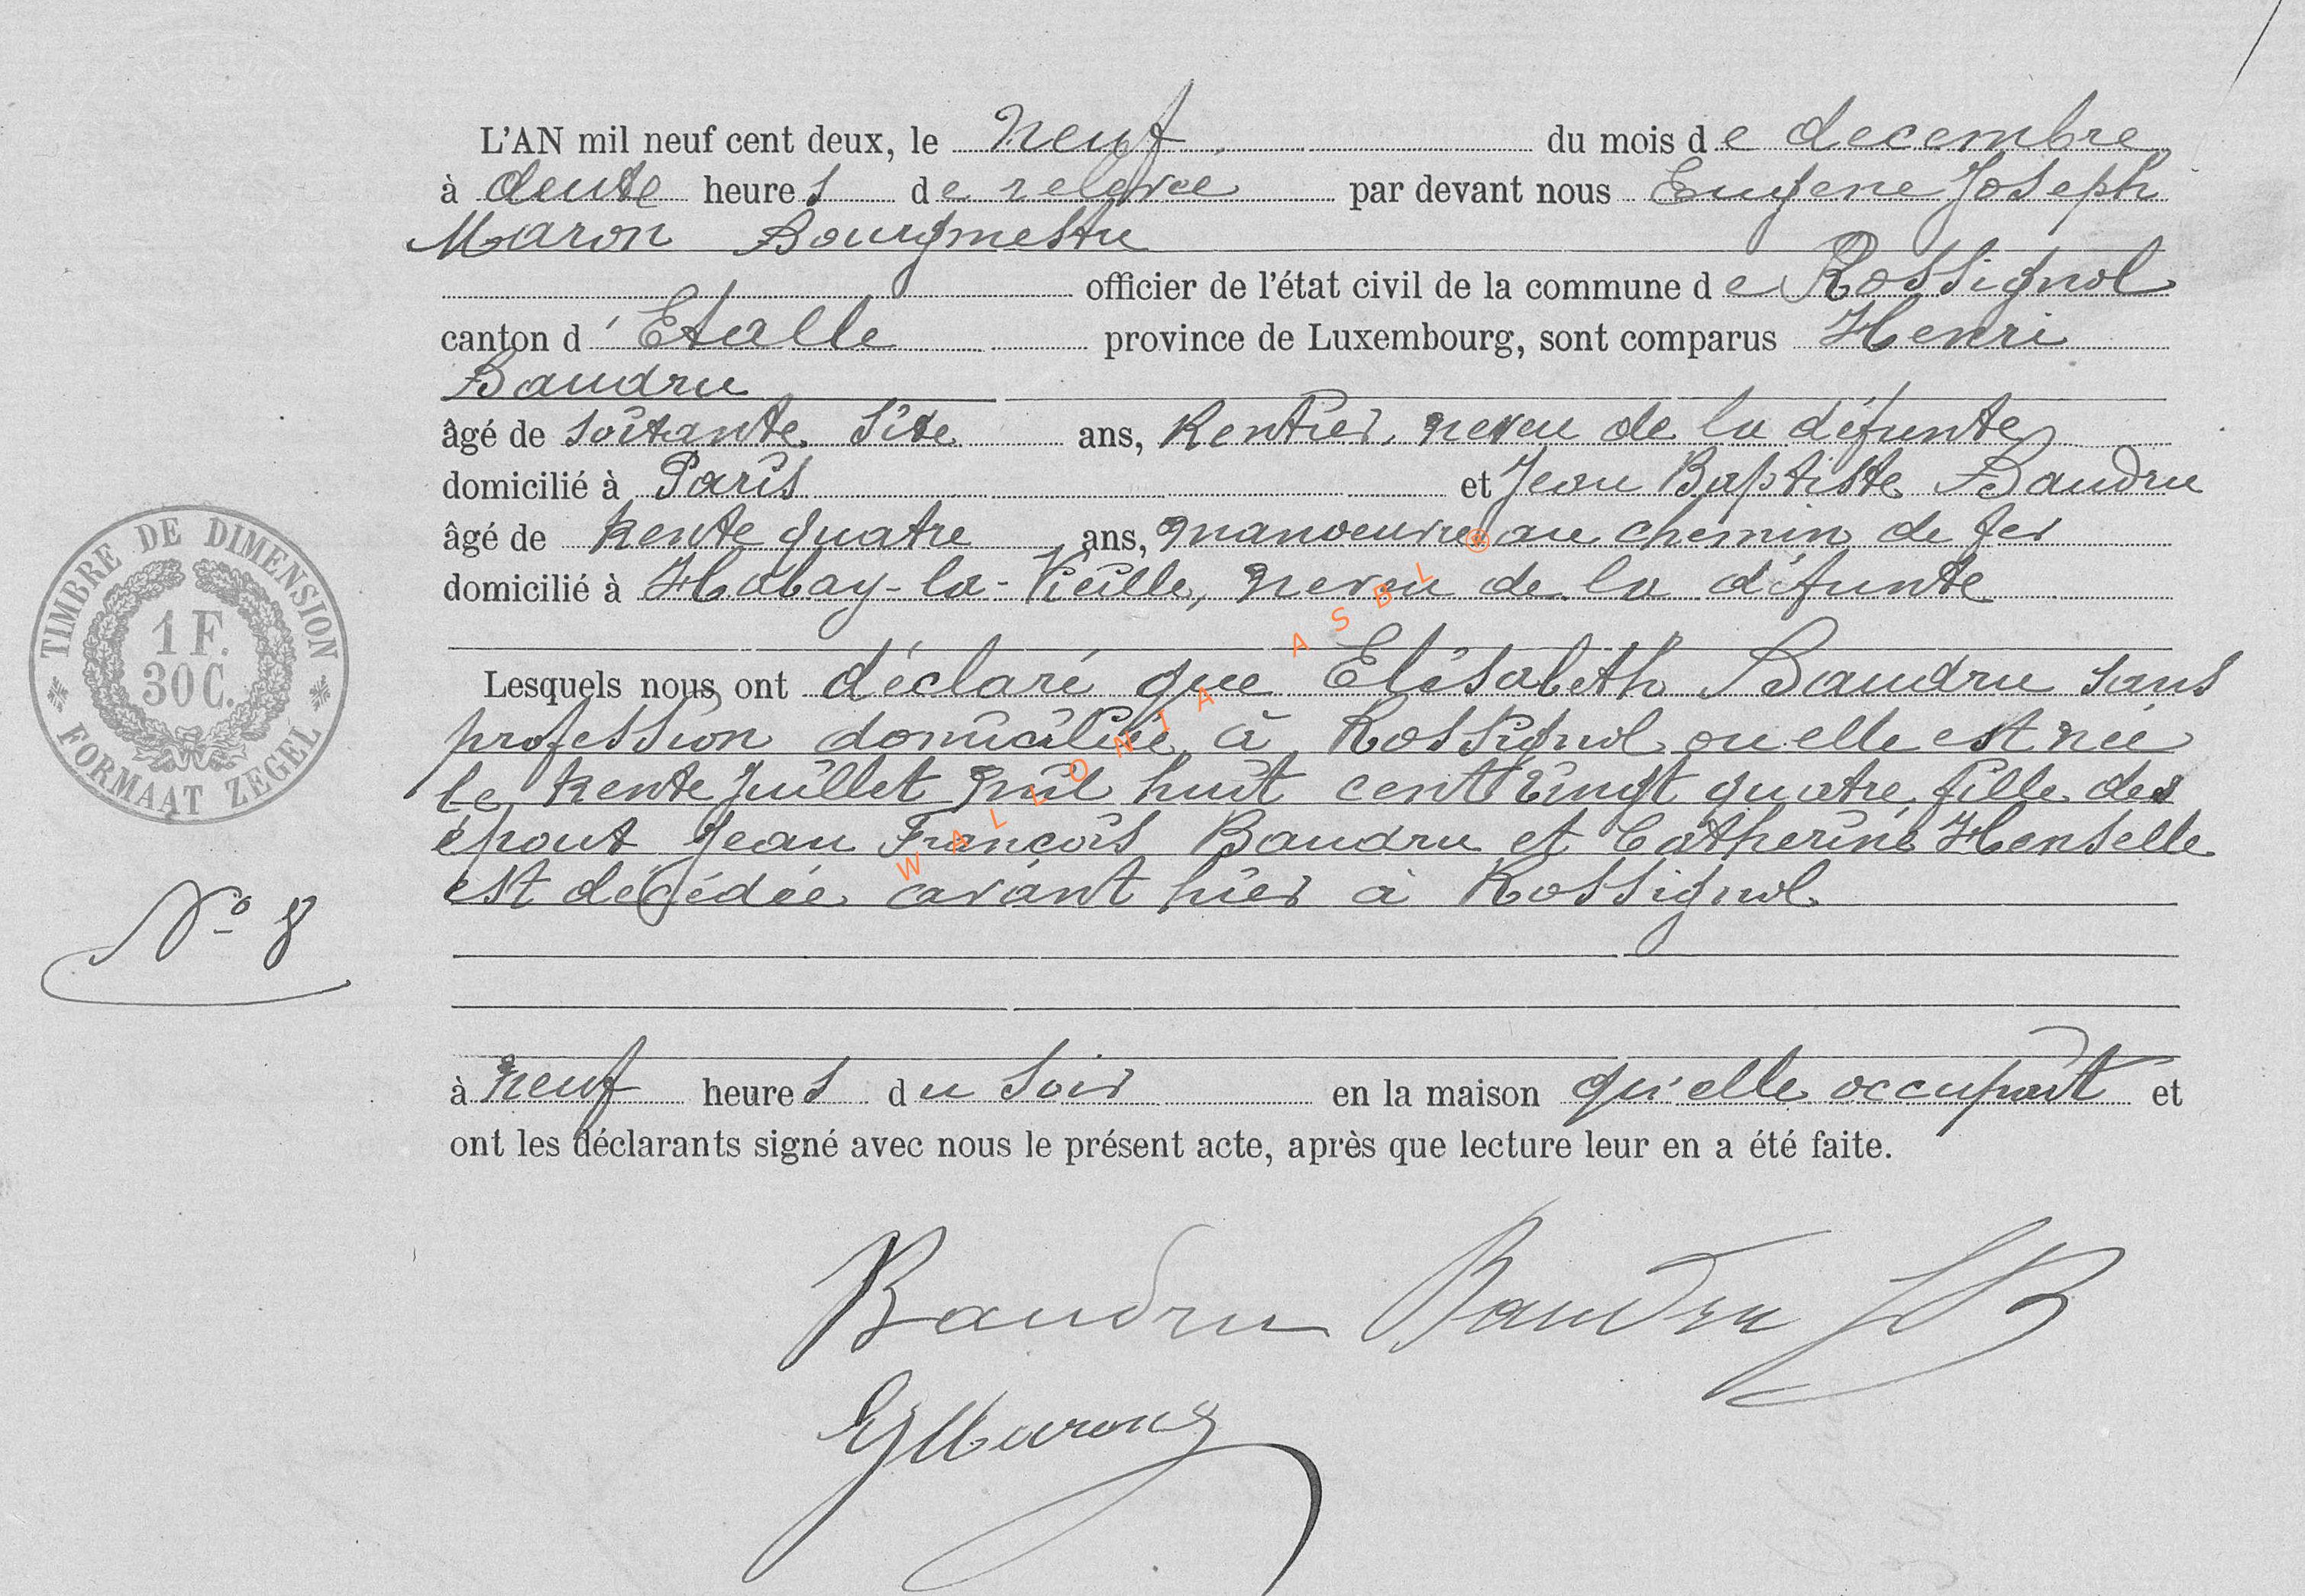 L'AN mil neuf cent deux, le neuf du mois de decembre
à deux heures de relevée par devant nous Eugene Joseph
Maron Bourgmestre
officier de l'état civil de la commune de Rossignol
canton d'Etalle province de Luxembourg, sont comparus Henri
Baudru
âgé de soixante six ans, Rentier, neveu de la défunte
domicilié à Paris et Jean Baptiste Baudru
âgé de trente quatre ans, manoeuvre au chemin de fer
domicilié à Habay-la-Vieille, neveu de la défunte
Lesquels nous ont déclaré que Elisabeth Baudru sans
profession domiciliée à Rossignol ou elle est née
le trente Juillet mil huit cent vingt quatre, fille des
époux Jean François Baudru et Catherine Henselle
est decédée avant hier à Rossignol
à neuf heures du soir en la maison qu'elle occupait et
ont les déclarants signé avec nous le présent acte, après que lecture leur en a été faite.
Baudru Baudru JB
EJMaron
TIMBRE DE DIMENSION
1 F.
30 C.
FORMAAT ZEGEL
N° 8
WALLONIA ASBL ®